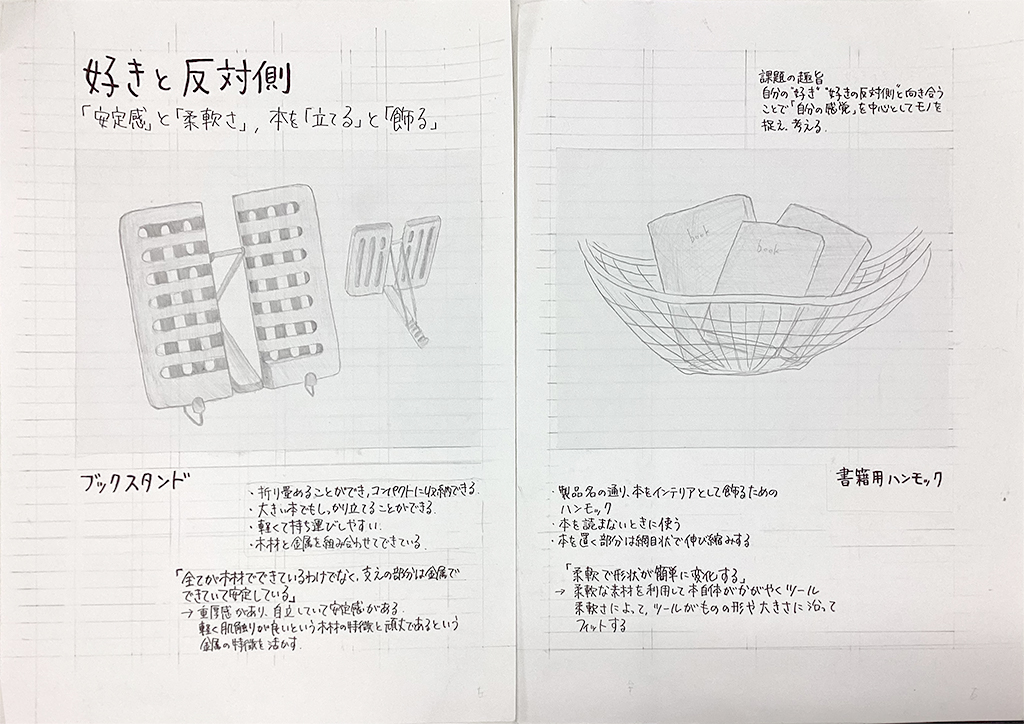 好きと反対側
「安定感」と「柔軟さ」, 本を「立てる」と「飾る」
課題の趣旨
自分の"好き" "好きの反対側"と向き合う
ことで「自分の感覚」を中心としてモノを
捉え、考える.
book
book
ブックスタンド
・折り畳めることができ, コンパクトに収納できる.
・大きい本でもしっかり立てることができる.
・軽くて持ち運びしやすい.
・木材と金属を組み合わせてできている.
「全てが木材でできているわけでなく, 支えの部分は金属で
できていて安定している」
→ 重厚感があり, 自立していて安定感がある.
軽く肌触りが良いという木材の特徴と頑丈であるという
金属の特徴を活かす.
書籍用ハンモック
・製品名の通り、本をインテリアとして飾るための
ハンモック
・本を読まないときに使う
・本を置く部分は網目状で伸び縮みする
「柔軟で形状が簡単に変化する」
→ 柔軟な素材を利用して本自体がかがやくツール
柔軟さによって, ツールがものの形や大きさに沿って
フィットする